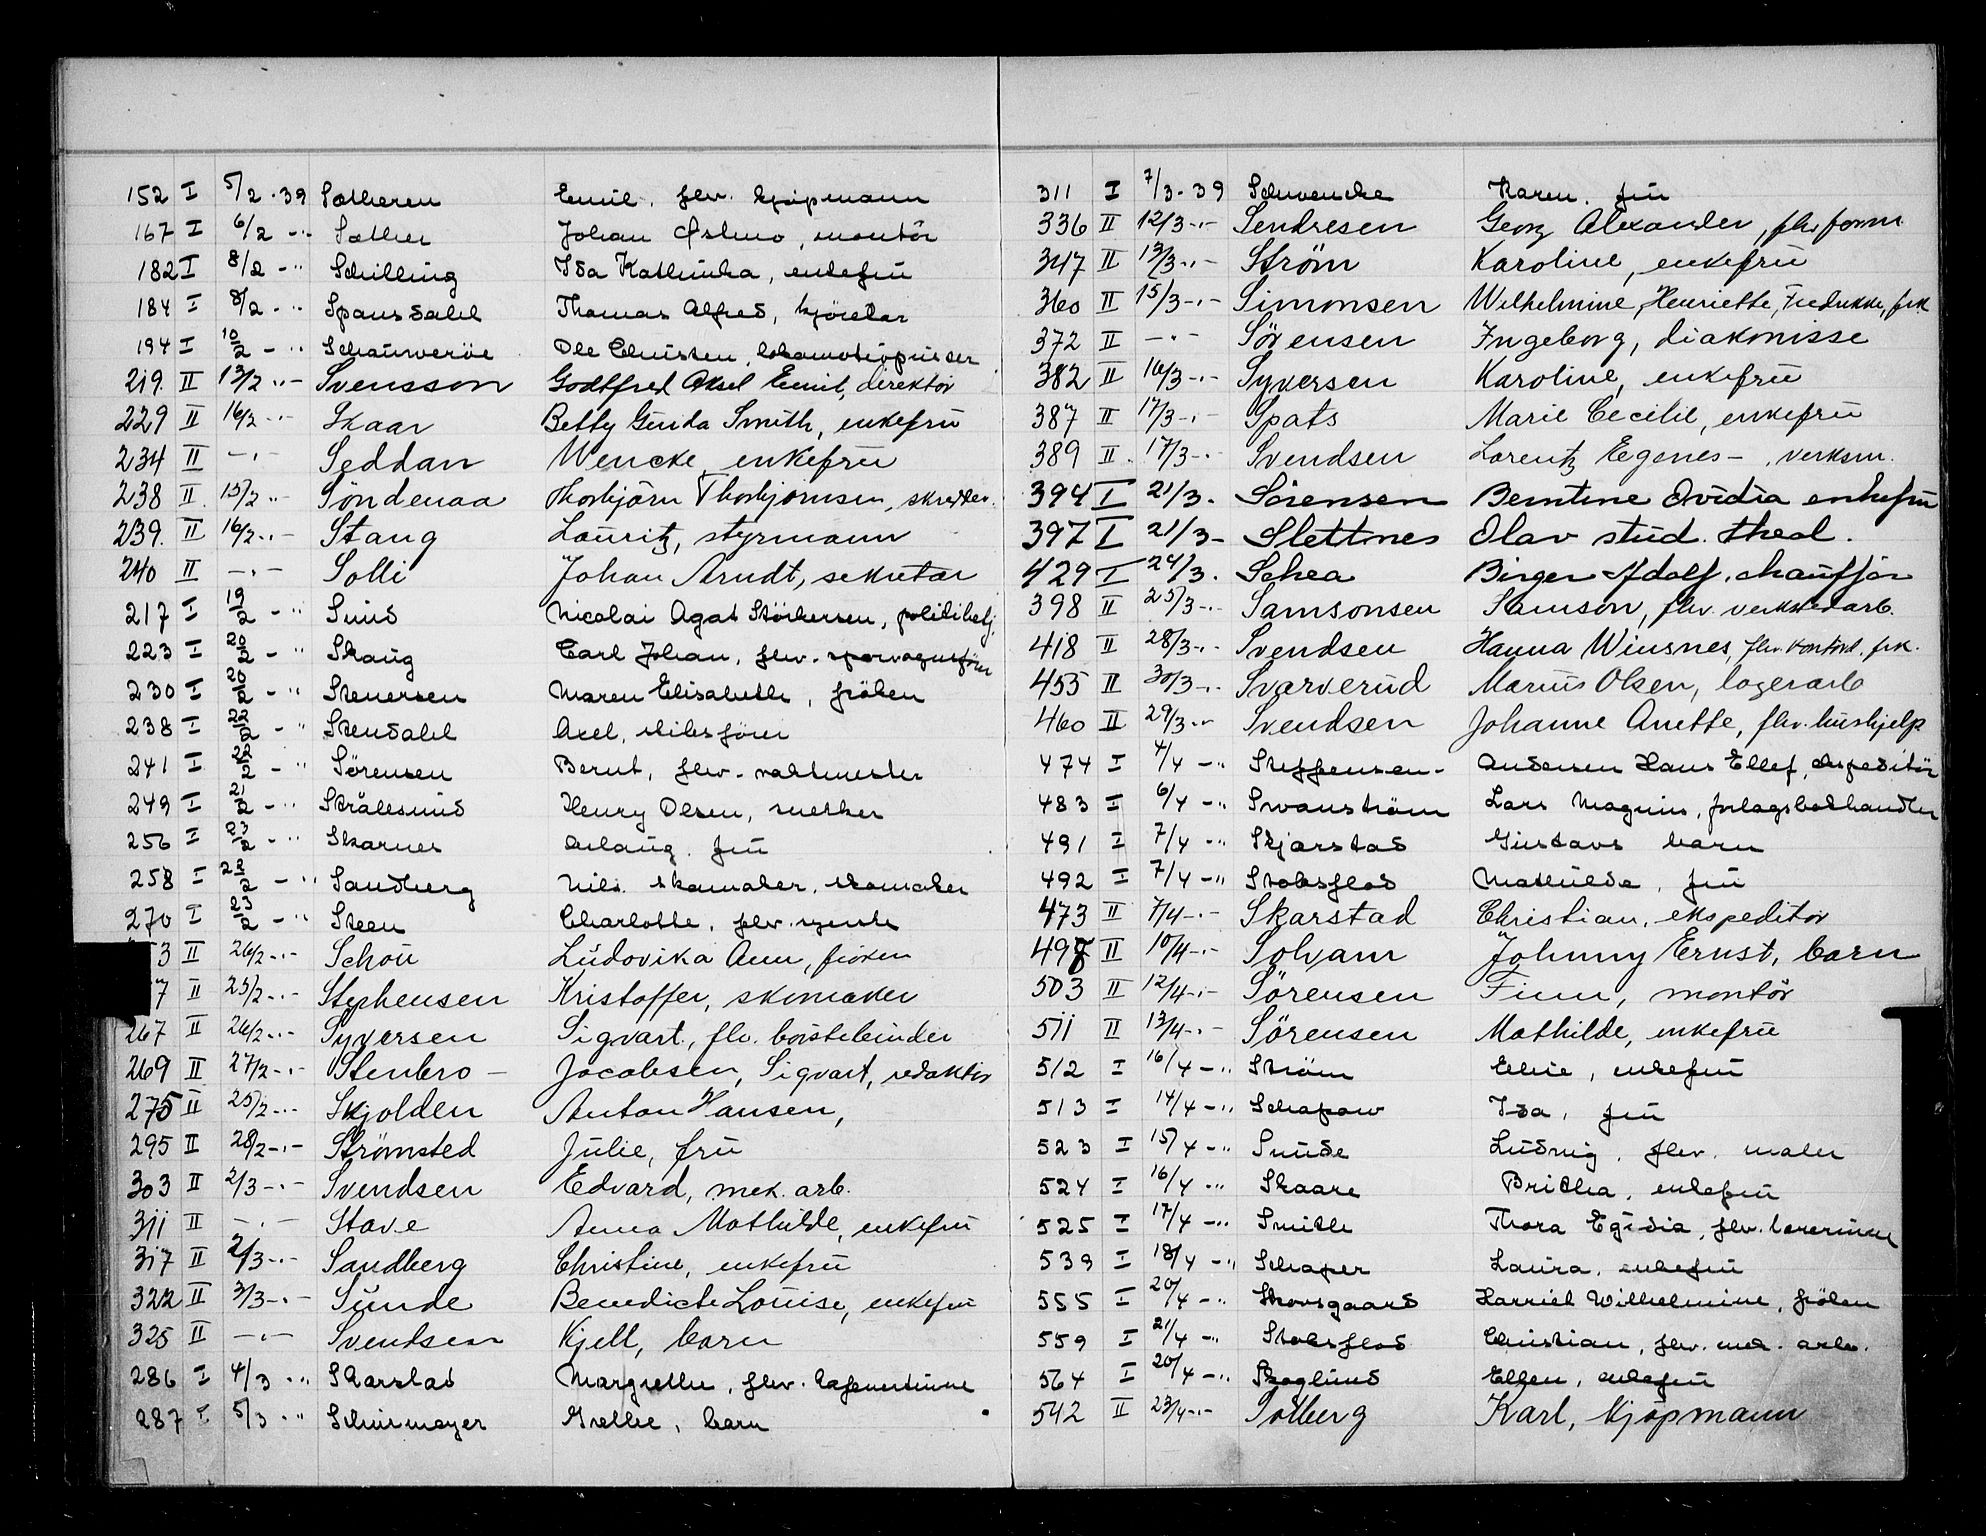 152 I 5/2 · 39 Sætheren Emil, flv. kjøpmann
167 I 6/2 -" Sæther Johan Østmo, montör
182 I 8/2 -" Schilling Ida Kathinka, enkefru
184 I 8/2 -" Spansdahl Thomas Alfred,
194 I 10/2 -" Ole Christen,
219. II 13/2 -"- Svensson Godtfred Aksel Emil, direktör
229 II 16/2 -"- Skaar Betty Gurda Smith, enkefru
234 II -"- Seddan Wencke, enkefru
238 II 15/2 "- Söndenaa Thorbjörn Thorbjörnsen,
239. II 16/2 -"- Stang Lauritz, styrmann
240 II -"- Solli Johan Arndt, sekretær
217 I 19/2 -" Smid Nicolai Agat
223 I 20/2 -" Skaug Carl Johan, flv. sporvognsförer
230 I 20/2 -" Stenersen Maren Elisabeth, fröken
238 I 22/2 -" Stendahl Axel, skibsförer
241 I 22/2 -" Sørensen Bernt, flv. vaktmester
249 I 21/2 -" Strålesmid Henry Olsen,
256 I 23/2 -" Skarnes Aslaug. fru
258 I 22/2 -" Sandberg Nils. skomaker, skomaker
270 I 23/2 -" Steen Charlotte, flv.
3 II 26/2 -"- Schou Ludovika Ann, fröken
7 II 25/2 -"- Stephensen Kristoffer, skomaker
267 II 26/2 -"- Syversen Sigvart, flv. börstebinder
269 II 27/2 -"- Stenbro - Jacobsen, Sigvart, redaktör
275 II 25/2 -"- Skjolden Anton Hansen,
295 II 28/2 -"- Strømsted Julie, fru
303 II 2/3 -"- Svendsen Edvard, mek. arb.
311 II -"- Stave Anna Mathilde, enkefru
317 II 2/3 -"- Sandberg Christine, enkefru
322 II 3/3 -"- Sunde Benedicte Louise, enkefru
325 II -"- Svendsen Kjell, barn
286 I 4/3 -" Skarstad Margrethe, flv.
287 I 5/3 -" Schirmeyer Grethe, barn
311 I 7/3 - 39 Schwencke Karen. fru
336 II 12/3 -"- Sendresen Georg Alexander, flv. form.
347 II 13/3 -"- Ström Karoline, enkefru
360 II 15/3 -"- Simonsen Wilhelmine, Henriette, Fredrikke, frk.
372 II -"- Sörensen Ingeborg, diakonisse
382 II 16/3 -"- Syversen Karoline, enkefru
387 II 17/3 -"- Spats Marie Cecilie, enkefru
389 II. 17/3 -"- Svendsen Lorentz Egenes -, verksm.
394 I 21/3. Sörensen Berntine Ovidia enkefru
397 I 21/3 - Slettnes Olav stud. theol.
429 I 24/3. Schea Birger Adolf. chauffør
398 II 25/3 -"- Samsonsen Samson, flv. verkstedarb.
418 II 28/3 -"- Svendsen Hanna Winsnes, flv. kontord. frk.
455 II 30/3 -"- Svarverud Marius Olsen, lagerarb
460 II 29/3 -"- Svendsen Johanne Anette, flv. hushjelp
474 I 4/4 -" Steffensen - Andersen Hans Ellef, ekspeditör
483 I 6/4 -" Svanström Lars Magnus, forlagsbokhandler
491 I 7/4 -" Skjarstad Gustavs barn
492 I 7/4 -" Stokseflod Mathilde, fru
473 II 7/4 -"- Skarstad Christian, ekspeditör
498 II 10/4 -"- Solvam Johnny Ernst, barn
503 II 12/4 -"- Sörensen Finn, montör
511 II 13/4 -"- Sörensen Mathilde, enkefru
512 I 16/4 -" Ström Elise, enkefru
513 I 14/4 -" Schapow Ida, fru
523 I 15/4 -" Snude Ludvig, flv. maler
524 I 16/4 -" Skaare Britha, enkefru
525 I 17/4 -" Smith Thora Egidia, flv. lærerinne
539 I 18/4 -" Schaper Laura, enkefru
555 I 20/4 -" Skovsgaard Harriet Wilhelmine, fröken
559 I 21/4 -" Stokseflod Christian, flv. mek. arb.
564 I 20/4 -" Skoglund Ellen, enkefru
542 II 23/4 -"- Solberg Karl, kjöpmann